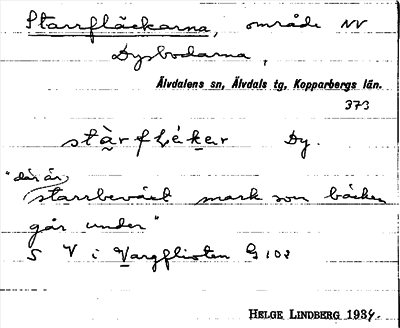 Starrfläckarna, område NV
Dysbodarna,
Älvdalens sn, Älvdals tg, Kopparbergs län.
373
stàrfléker Dy.
"där är
starrbeväxt mark som bäcken
går under"
S V i Vargflisten G 102
HELGE LINDBERG 1934.